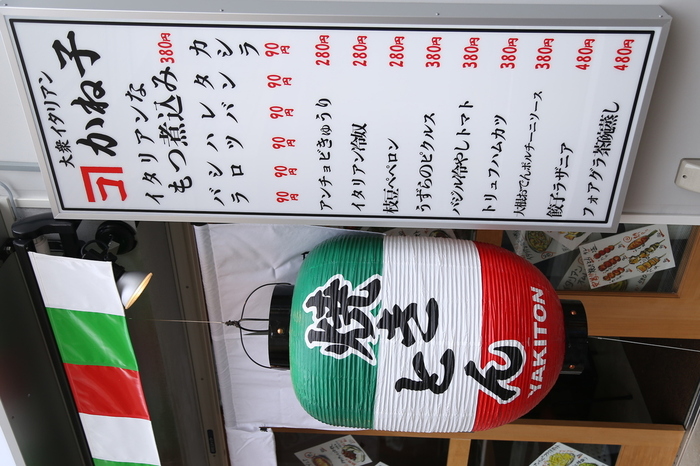 大衆イタリアン
かね子
イタリアンな
もつ煮込み 380円
バラ 90円
シロ 90円
ハツ 90円
レバ 90円
タン 90円
カシラ 90円
アンチョビきゅうり 280円
イタリアン冷奴 280円
枝豆ペペロン 280円
うずらのピクルス 380円
バジル冷やしトマト 380円
トリュフハムカツ 380円
大根おでんポルチーニソース 380円
餃子ラザニア 480円
フォアグラ茶碗蒸し 480円
焼きとん
YAKITON